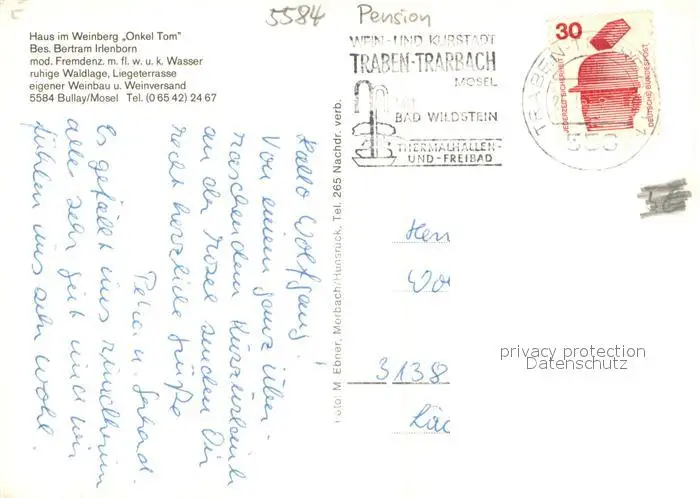 5584 Pension
Haus im Weinberg „Onkel Tom"
Bes. Bertram Irlenborn
mod. Fremdenz. m. fl. w. u. k. Wasser
ruhige Waldlage, Liegeterrasse
eigener Weinbau u. Weinversand
5584 Bullay/Mosel Tel. (0 65 42) 24 67
WEIN-UND KURSTADT
TRABEN-TRARBACH
MOSEL
MIT
BAD WILDSTEIN
THERMALHALLEN-
UND-FREIBAD
30
JEDERZEIT SICHERHEIT
DEUTSCHE BUNDESPOST
TRABEN-T
Hallo Wolfgang!
Von einem ganz über-
raschenden Kurzurlaub
an der Mosel senden Dir
recht herzliche Grüße
Petra u. Gerhard.
Es gefällt uns
alle sehr gut und wir
fühlen uns sehr wohl.
Foto: M. Ebner, Morbach/Hunsrück, Tel. 265 Nachdr. verb.
Herr
Wo
3138
privacy protection
Datenschutz